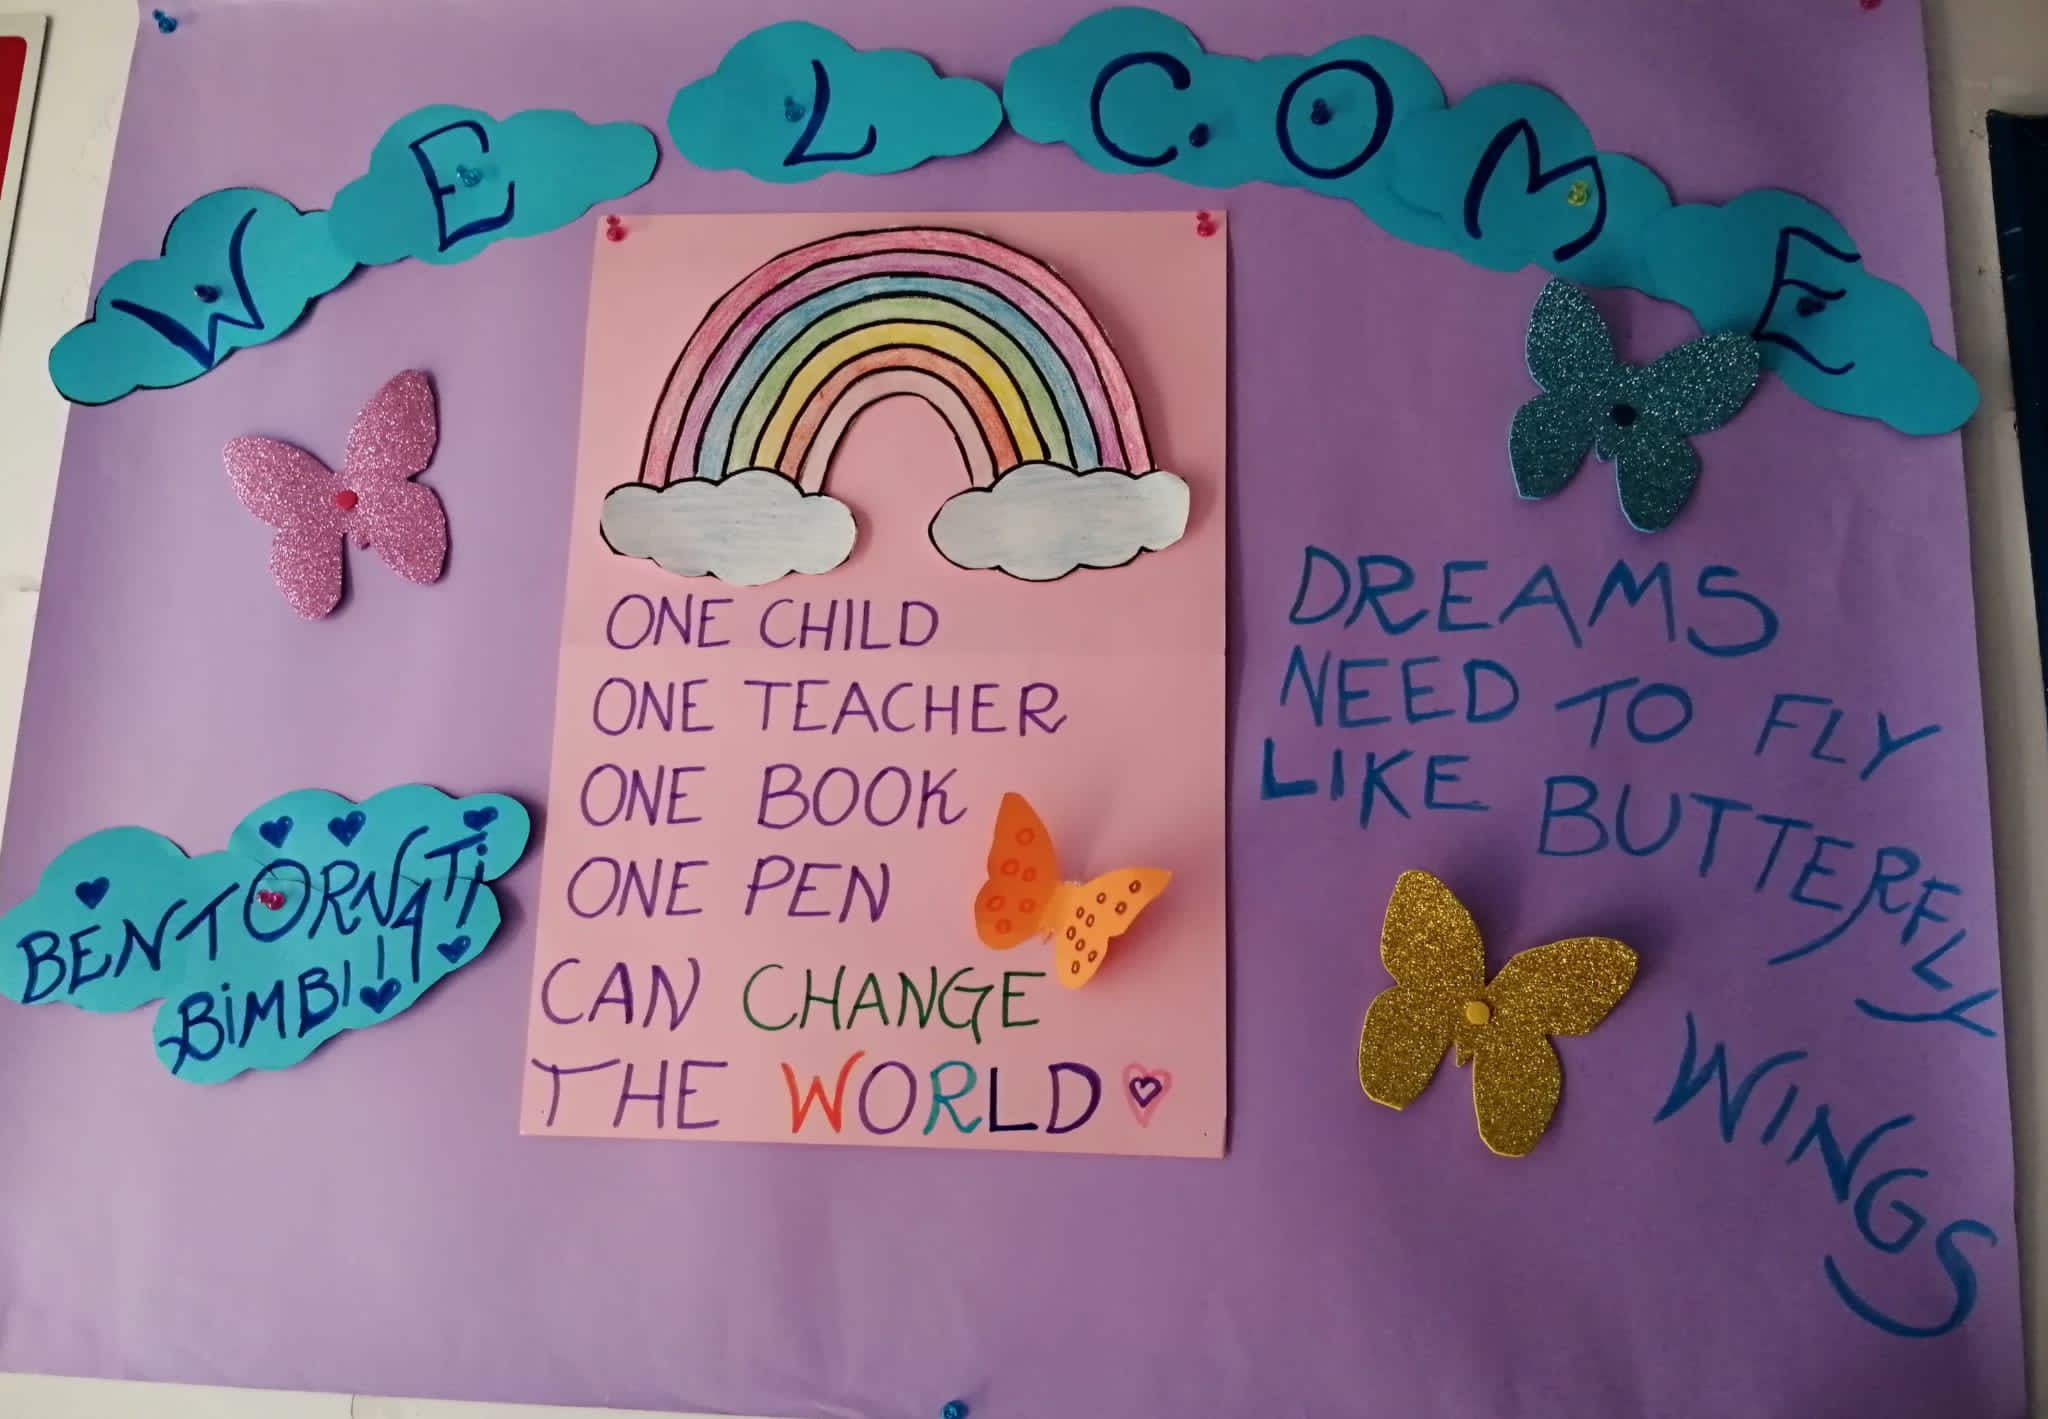 WELCOME
ONE CHILD
ONE TEACHER
ONE BOOK
ONE PEN
CAN CHANGE
THE WORLD
DREAMS
NEED TO FLY
LIKE BUTTERFLY
WINGS
BENTORNATi
BiMBI!